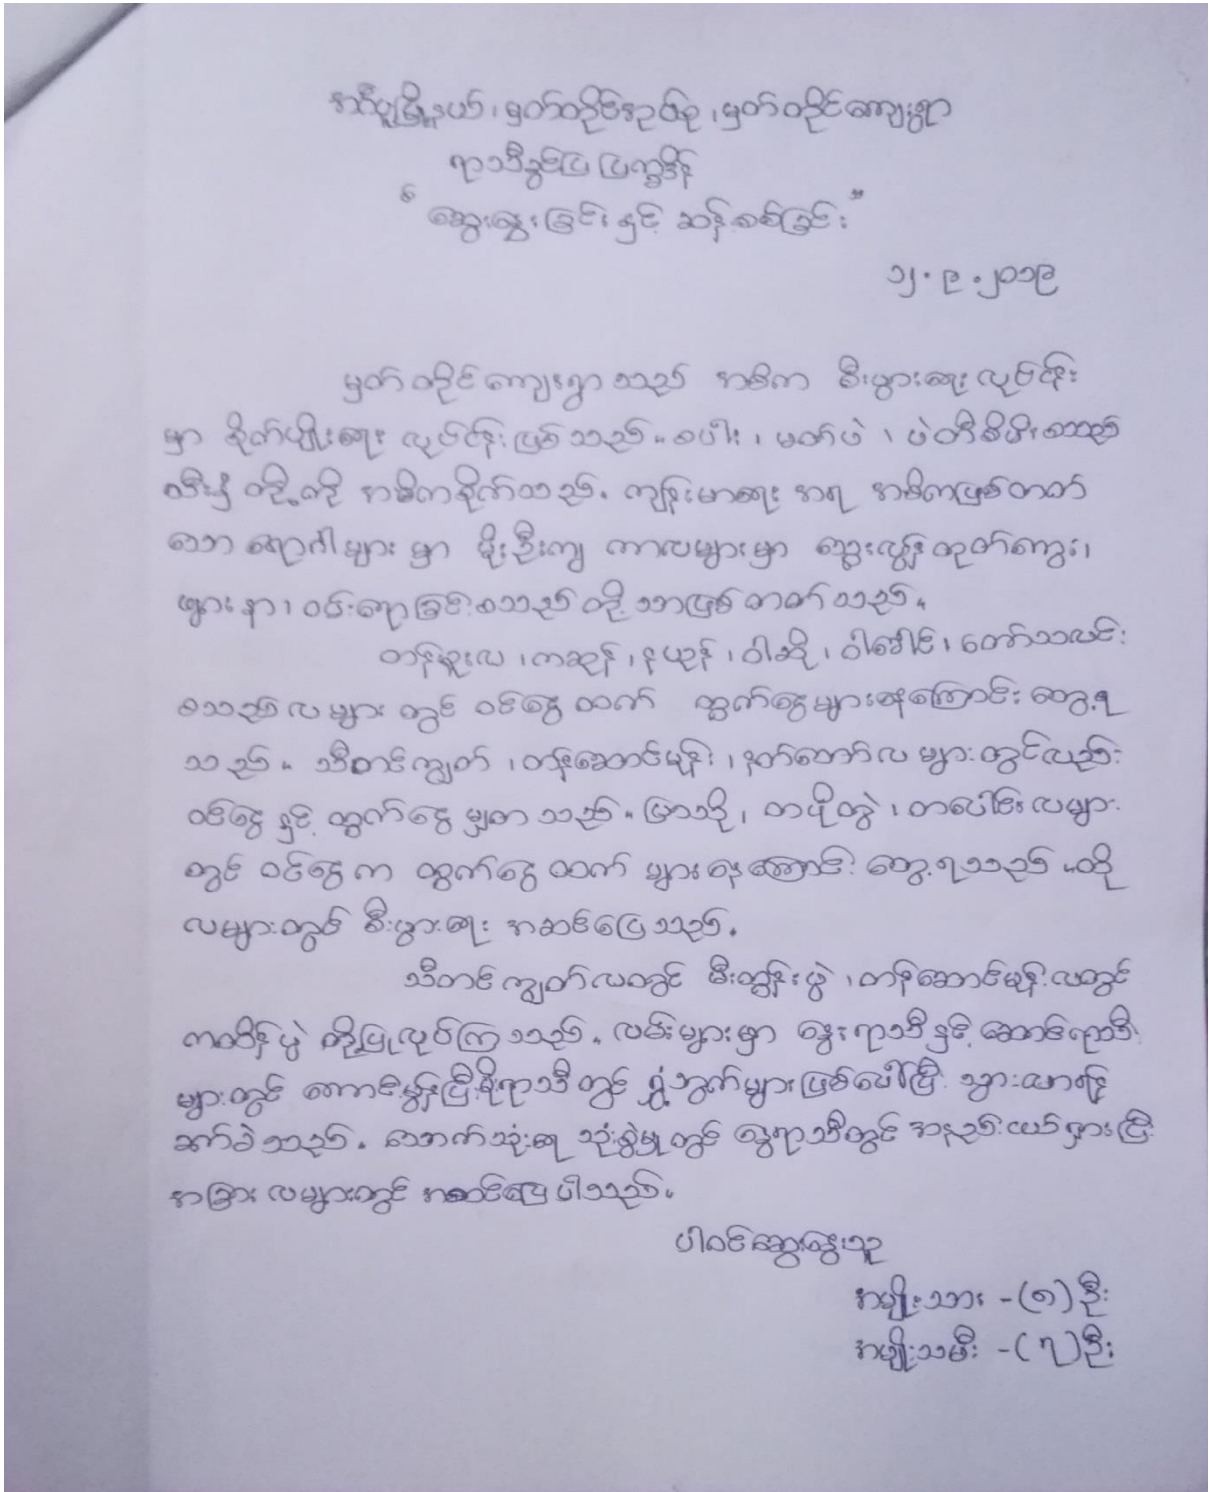 အင်္ဂပူမြို့နယ်၊ မှတ်တိုင်အုပ်စု၊ မှတ်တိုင်ကျေးရွာ
ရာသီခွင်ပြ ပြက္ခဒိန်
“ ဆွေးနွေးခြင်းနှင့် ဆန်းစစ်ခြင်း ”
၁၂.၉.၂၀၁၉
မှတ်တိုင်ကျေးရွာသည် အဓိက စီးပွားရေးလုပ်ငန်း
မှာ စိုက်ပျိုးရေး လုပ်ငန်းဖြစ်သည်။ စပါး၊ မတ်ပဲ၊ ပဲတီစိမ်းစသည့်
သီးနှံ တို့ကို အဓိကစိုက်သည်။ ကျန်းမာရေး အရ အဓိကဖြစ်တတ်
သော ရောဂါများ မှာ မိုးဦးကျ ကာလများမှာ သွေးလွန်တုတ်ကွေး၊
ဖျားနာ၊ ဝမ်းရောခြင်းစသည် တို့သာဖြစ်တတ်သည်။
တန်ခူးလ၊ ကဆုန်၊ နယုန်၊ ဝါဆို၊ ဝါခေါင်၊ တော်သလင်း
စသည့်လများ တွင် ဝင်ငွေထက် ထွက်ငွေများနေကြောင်း တွေ့ရ
သည်။ သီတင်းကျွတ်၊ တန်ဆောင်မုန်း၊ နတ်တော်လ များတွင်လည်း
ဝင်ငွေ နှင့် ထွက်ငွေ မျှတသည်။ ပြာသို၊ တပို့တွဲ၊ တပေါင်းလများ
တွင် ဝင်ငွေက ထွက်ငွေထက် များနေကြောင်း တွေ့ရသည်။ ထို
လများတွင် စီးပွားရေး အဆင်ပြေသည်။
သီတင်းကျွတ်လတွင် မီးထွန်းပွဲ၊ တန်ဆောင်မုန်းလတွင်
ကထိန်ပွဲ တို့ပြုလုပ်ကြသည်။ လမ်းများမှာ နွေရာသီနှင့် ဆောင်းရာသီ
များတွင် ကောင်းမွန်ပြီးမိုးရာသီတွင် ရွှံ့ဘွက်များဖြစ်ပေါ်ပြီး သွားလာရန်
ခက်ခဲသည်။ သောက်သုံးရေ သုံးစွဲမှုတွင် နွေရာသီတွင် အနည်းငယ်ရှားပြီး
အခြား လများတွင် အဆင်ပြေပါသည်။
ပါဝင်ဆွေးနွေးသူ
အမျိုးသား -(၈)ဦး
အမျိုးသမီး -(၇)ဦး